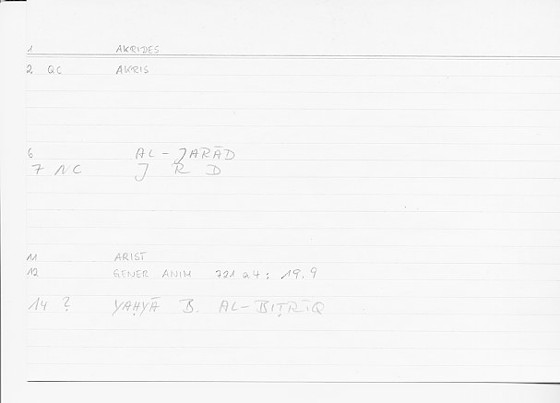 1 AKRIDES
2 QC AKRIS
6 AL-JARĀD
7 NC J R D
11 ARIST
12 GENER ANIM 721 a 4 : 19.9
14 ? YAḤYĀ B. AL-BIṬRĪQ